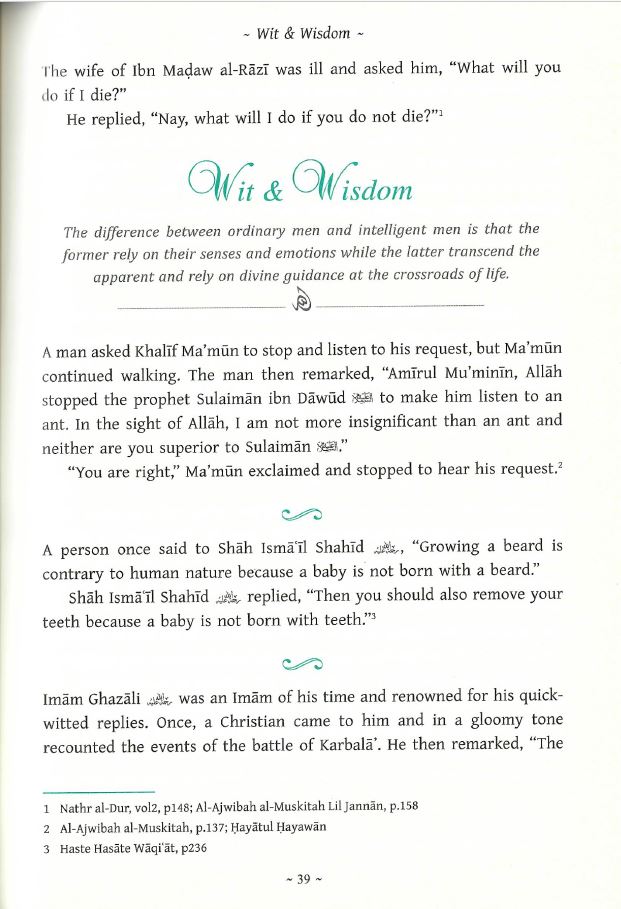 ~ Wit & Wisdom ~
The wife of Ibn Maḍaw al-Rāzī was ill and asked him, “What will you
do if I die?”
He replied, “Nay, what will I do if you do not die?”1
Wit & Wisdom
The difference between ordinary men and intelligent men is that the
former rely on their senses and emotions while the latter transcend the
apparent and rely on divine guidance at the crossroads of life.
A man asked Khalīf Ma’mūn to stop and listen to his request, but Ma’mūn
continued walking. The man then remarked, “Amīrul Mu’minīn, Allāh
stopped the prophet Sulaimān ibn Dāwūd to make him listen to an
ant. In the sight of Allāh, I am not more insignificant than an ant and
neither are you superior to Sulaimān .”
“You are right,” Ma’mūn exclaimed and stopped to hear his request.2
A person once said to Shāh Ismā‘īl Shahīd , “Growing a beard is
contrary to human nature because a baby is not born with a beard.”
Shāh Ismā‘īl Shahīd replied, “Then you should also remove your
teeth because a baby is not born with teeth.”3
Imām Ghazāli was an Imām of his time and renowned for his quick-
witted replies. Once, a Christian came to him and in a gloomy tone
recounted the events of the battle of Karbalā’. He then remarked, “The
1 Nathr al-Dur, vol2, p148; Al-Ajwibah al-Muskitah Lil Jannān, p.158
2 Al-Ajwibah al-Muskitah, p.137; Ḥayātul Ḥayawān
3 Haste Hasāte Wāqi‘āt, p236
~ 39 ~